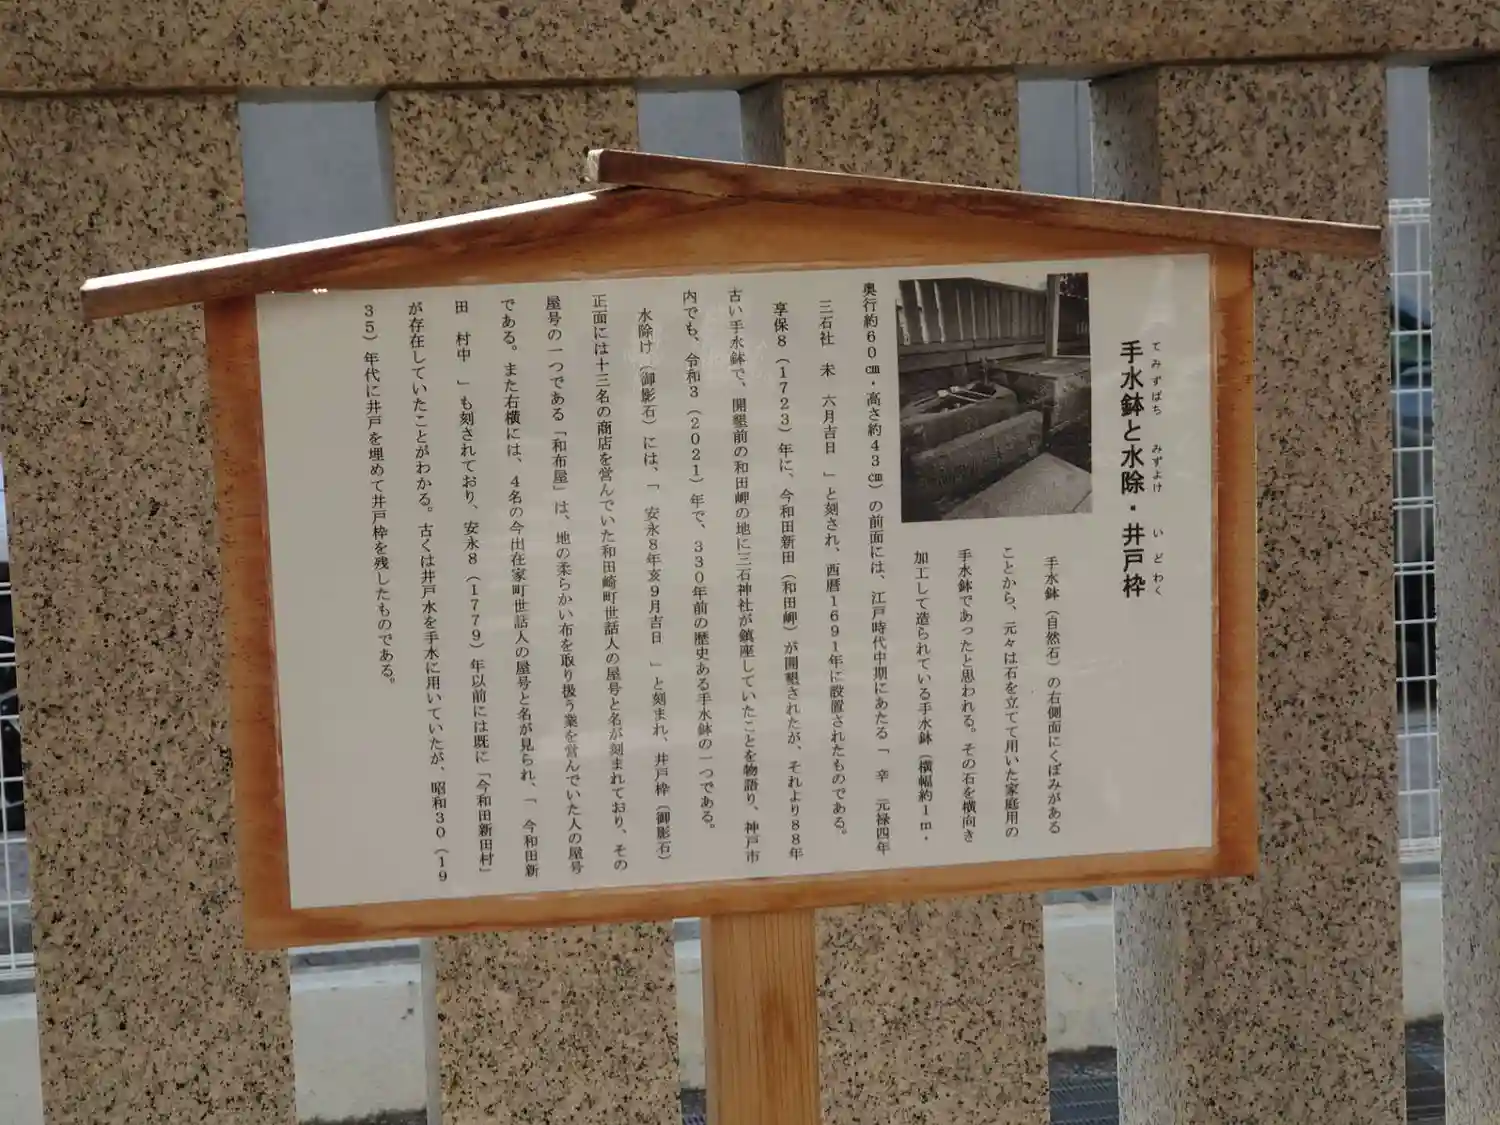 手水鉢と水除・井戸枠
てみずばち みずよけ いどわく
手水鉢（自然石）の右側面にくぼみがある
ことから、元々は石を立てて用いた家庭用の
手水鉢であったと思われる。その石を横向き
加工して造られている手水鉢（横幅約１ｍ・
奥行約６０㎝・高さ約４３㎝）の前面には、江戸時代中期にあたる「　辛　元禄四年
三石社　未　六月吉日　」と刻され、西暦１６９１年に設置されたものである。
享保８（１７２３）年に、今和田新田（和田岬）が開墾されたが、それより８８年
古い手水鉢で、開墾前の和田岬の地に三石神社が鎮座していたことを物語り、神戸市
内でも、令和３（２０２１）年で、３３０年前の歴史ある手水鉢の一つである。
水除け（御影石）には、「　安永８年亥９月吉日　」と刻まれ、井戸枠（御影石）
正面には十三名の商店を営んでいた和田崎町世話人の屋号と名が刻まれており、その
屋号の一つである「和布屋」は、地の柔らかい布を取り扱う業を営んでいた人の屋号
である。また右横には、４名の今出在家町世話人の屋号と名が見られ、「　今和田新
田　村中　」も刻されており、安永８（１７７９）年以前には既に「今和田新田村」
が存在していたことがわかる。古くは井戸水を手水に用いていたが、昭和３０（１９
３５）年代に井戸を埋めて井戸枠を残したものである。